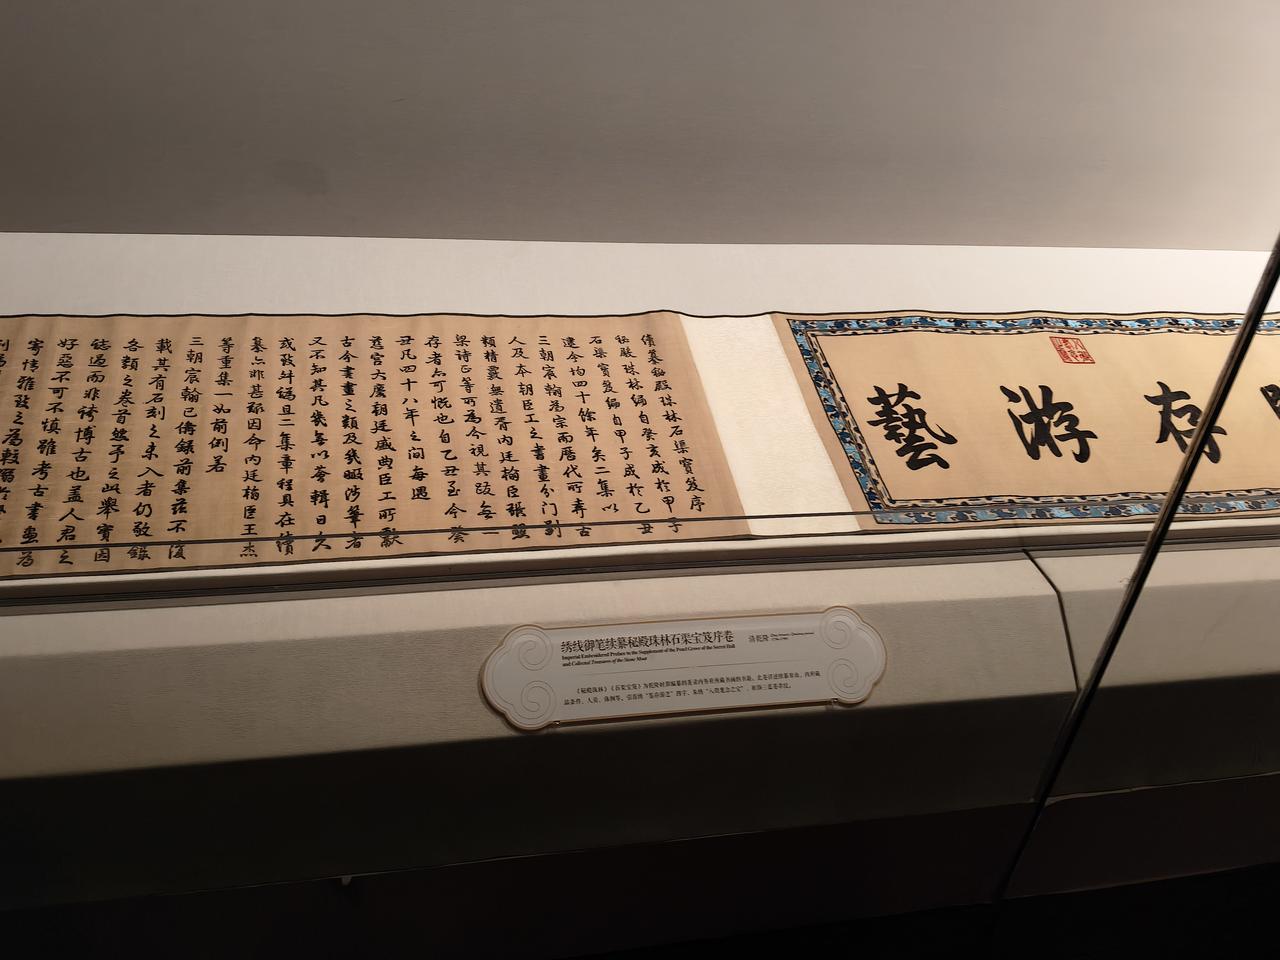 存
游
藝
續纂秘殿珠林石渠寶笈序
秘殿珠林編自癸亥成於甲子
石渠寶笈編自甲子成於乙丑
逮今均四十餘年矣二集以
三朝宸翰為宗而歷代所弆古
人及本朝臣工之書畫分門別
類精覈無遺胥內廷翰臣張照
梁詩正等可為今視其跋無一
存者亦可慨也自乙丑至今癸
丑凡四十八年之間每遇
慈宮大慶朝廷盛典臣工所獻
古今書畫之類及幾暇涉筆者
又不知其凡幾無以薈輯日久
或致舛譌且二集章程具在續
纂亦非甚難因命內廷翰臣王杰
等重集一如前例若
三朝宸翰已備錄前集茲不復
載其有石刻之未入者仍敬錄
各類之卷首然予之此舉實因
誌過而非誇博古也蓋人君之
好惡不可不慎雖考古書畫為
寄情雅致之為較溺於
绣线御笔续纂秘殿珠林石渠宝笈序卷 清乾隆
Imperial Embroidered Preface to the Supplement of the Pearl Grove of the Secret Hall
and Collected Treasures of the Stone Moat
《秘殿珠林》《石渠宝笈》为乾隆时期编纂的